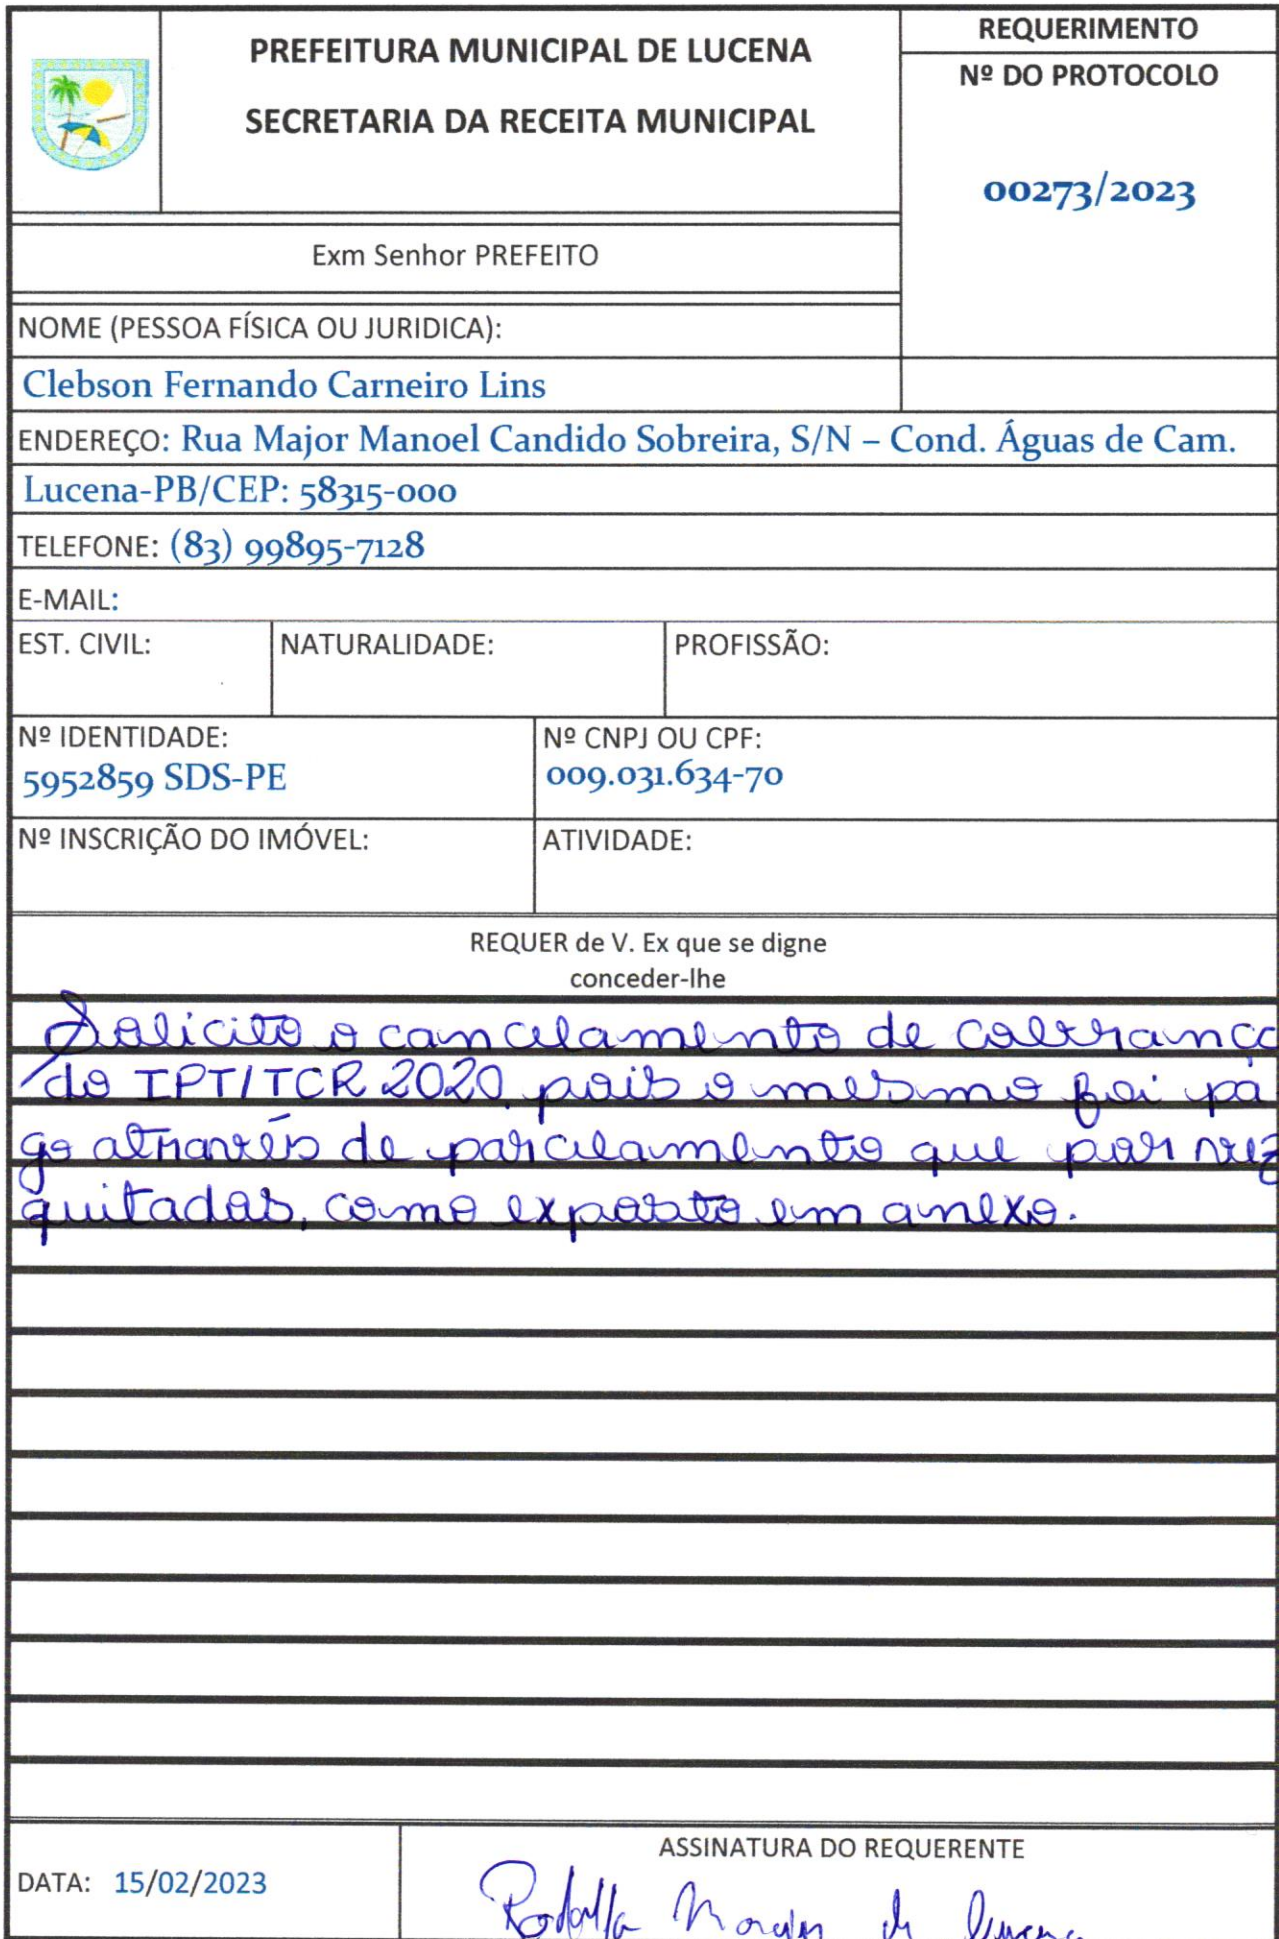 PREFEITURA MUNICIPAL DE LUCENA
SECRETARIA DA RECEITA MUNICIPAL
REQUERIMENTO
Nº DO PROTOCOLO
00273/2023
Exm Senhor PREFEITO
NOME (PESSOA FÍSICA OU JURIDICA):
Clebson Fernando Carneiro Lins
ENDEREÇO: Rua Major Manoel Candido Sobreira, S/N – Cond. Águas de Cam.
Lucena-PB/CEP: 58315-000
TELEFONE: (83) 99895-7128
E-MAIL:
EST. CIVIL:
NATURALIDADE:
PROFISSÃO:
Nº IDENTIDADE:
5952859 SDS-PE
Nº CNPJ OU CPF:
009.031.634-70
Nº INSCRIÇÃO DO IMÓVEL:
ATIVIDADE:
REQUER de V. Ex que se digne
conceder-lhe
Solicito o cancelamento de cobrança
do IPT/TCR 2020, pois o mesmo foi pa
go através de parcelamento que por vez
quitadas, como exposto em anexo.
DATA: 15/02/2023
ASSINATURA DO REQUERENTE
de Lucena